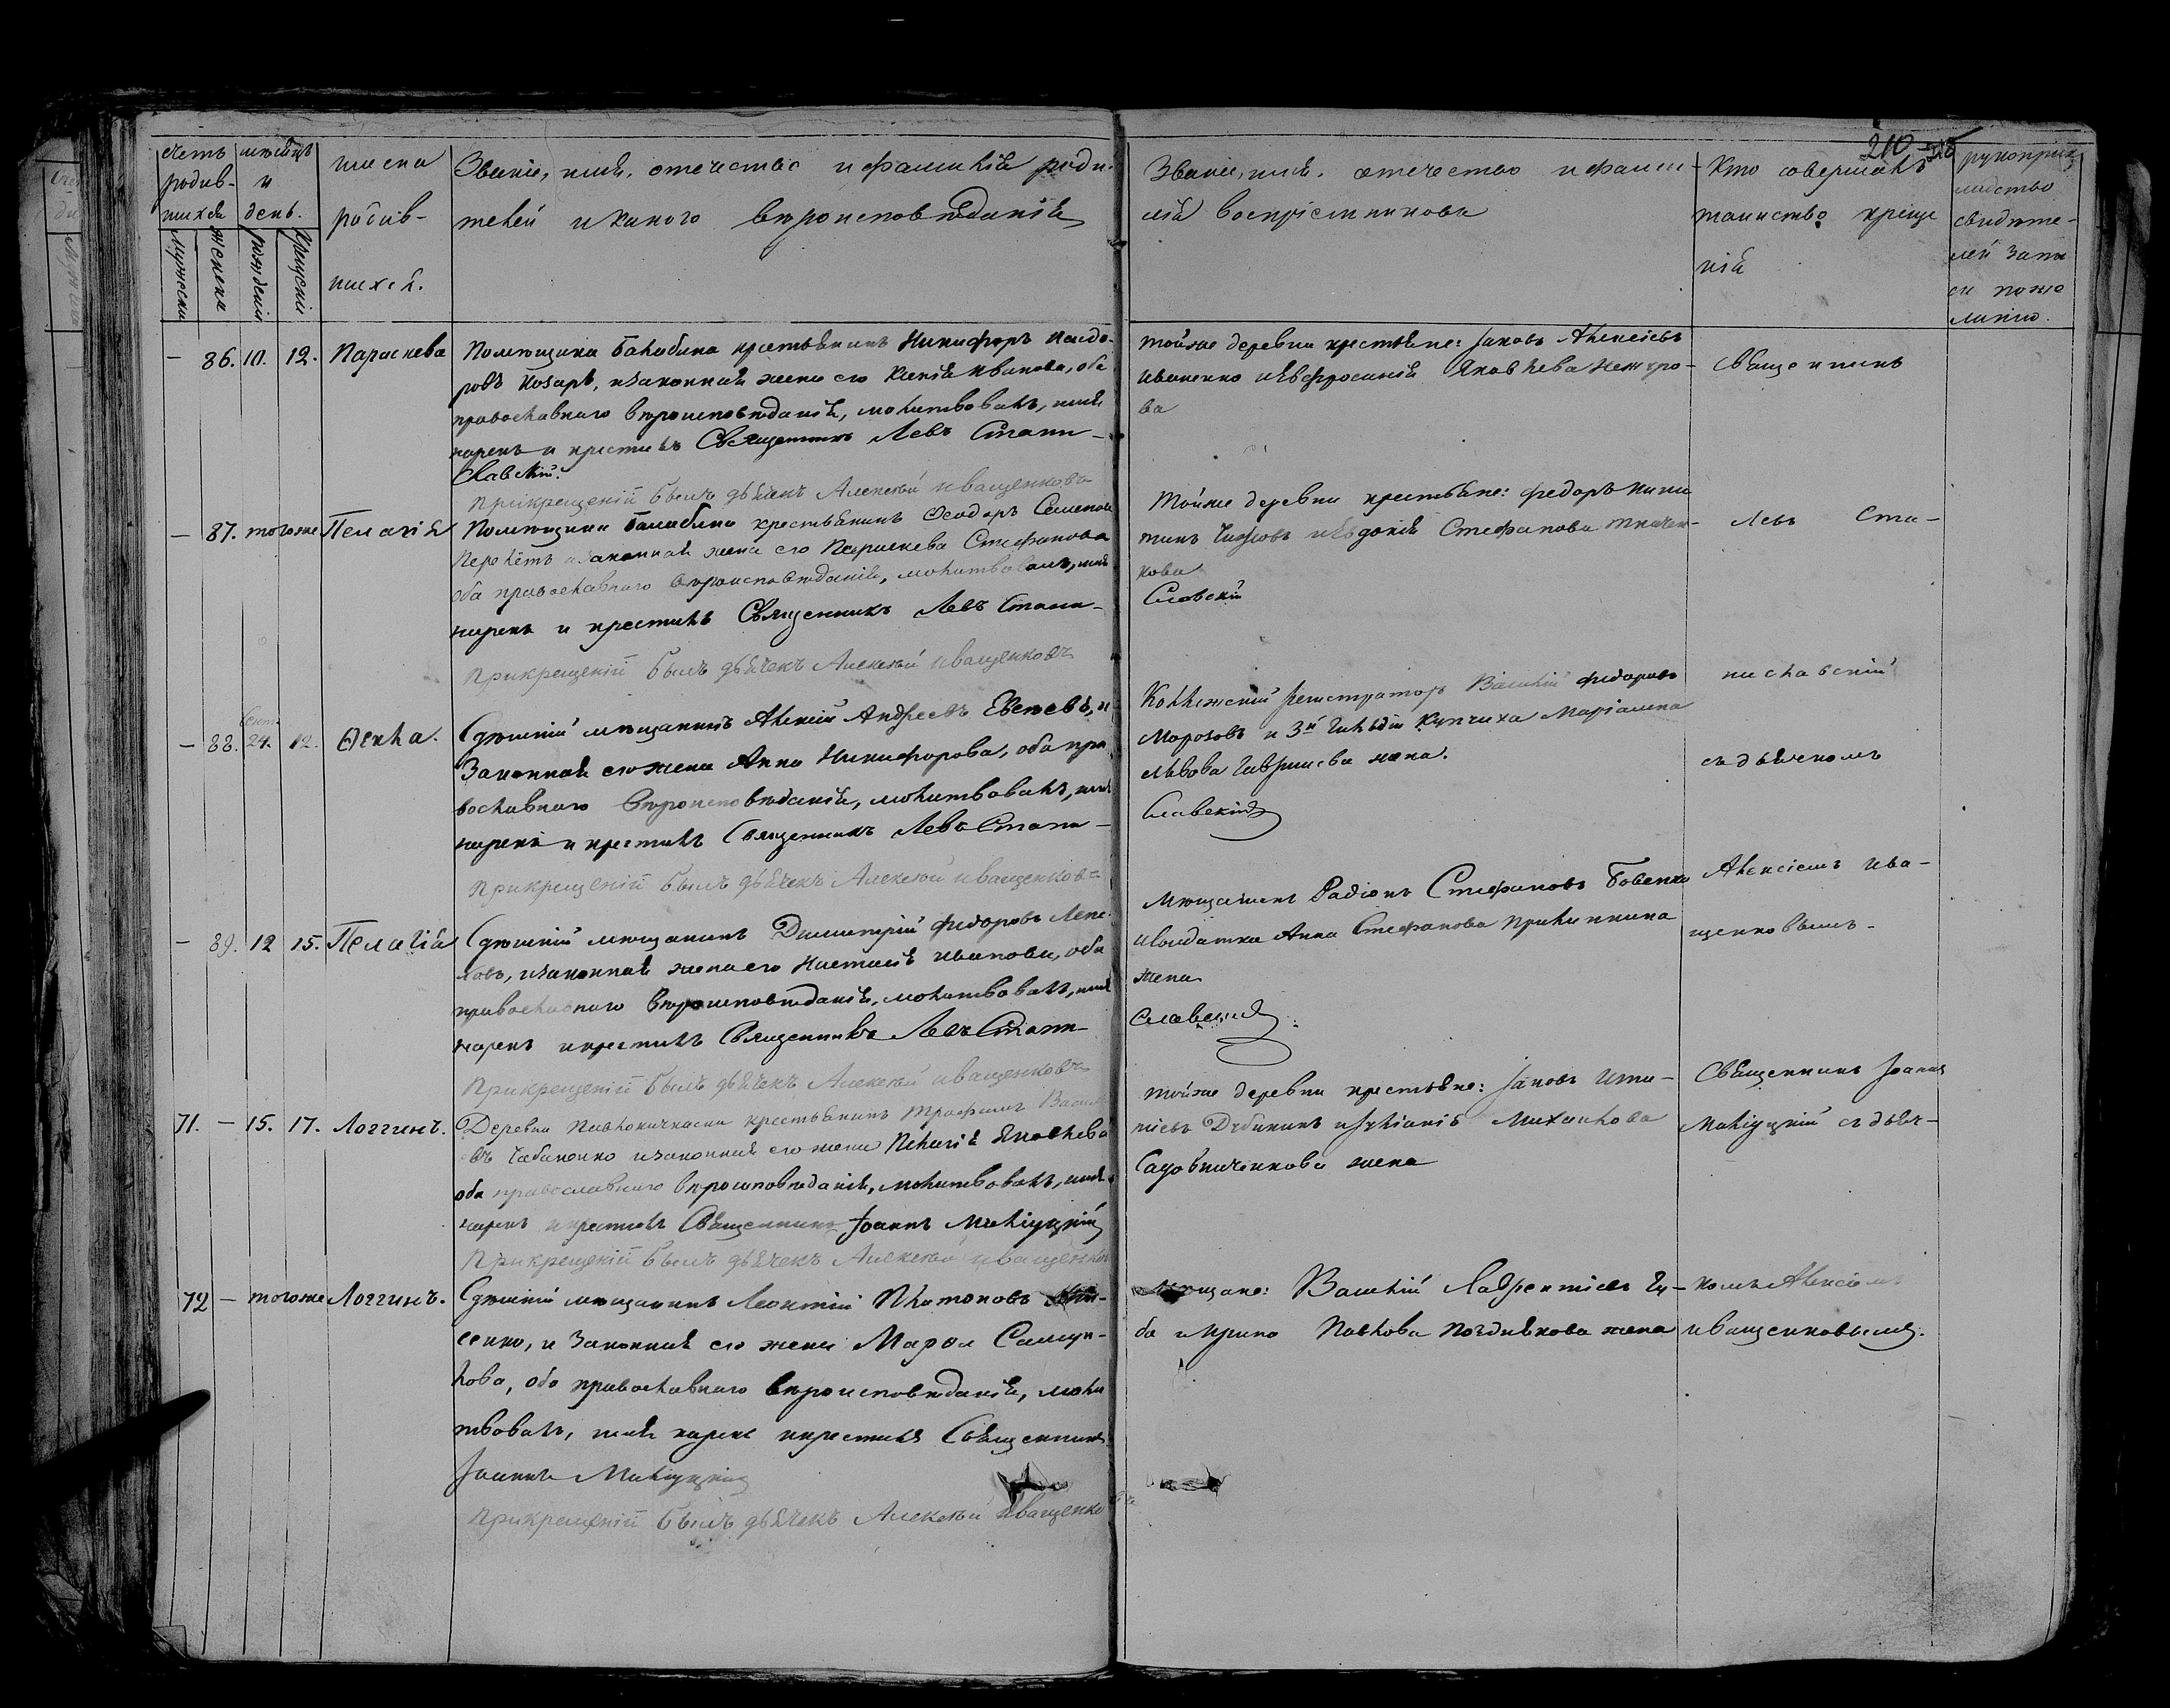 210
Счетъ родив-шихся
мѣсяцъ и день.
имена родив-шихся.
Званіе, имя, отечество и фамилія роди-
телей и какого вѣроисповѣданія
Званіе, имя, отечество и фами-
лія воспріемниковъ
Кто совершалъ
таинство креще
нія
рукоприк
ладство
свидѣте-
лей запи
си по же
ланію.
рожденія
крещенія
– 86. 10. 12. Параскева
Помѣщика Балабина крестьянинъ Никифоръ
Козаръ, и законная жена его Ксенія Иванова, оба
православнаго вѣроисповѣданія, молитвовалъ, имя
нарекъ и крестилъ Священникъ Левъ Стани-
славскій.
При крещеніи былъ дьячекъ Алексѣй Иващенковъ
тойже деревни крестьяне: Іаковъ Алексіевъ
Иваненко и Евфросинія Яковлева
ва
Священникъ
– 87. тогоже Пелагія
Помѣщика Балабина крестьянинъ Ѳеодоръ Семеновъ
и законная жена его Параскева Стефанова
оба православнаго вѣроисповѣданія, молитвовалъ, имя
нарекъ и крестилъ Священникъ Левъ Стани-
При крещеніи былъ дьячекъ Алексѣй Иващенковъ
Тойже деревни крестьяне: Федоръ Ники
тинъ и Евдокія Стефанова Ткачен-
кова
Славскій
Левъ Ста-
– 88. Сент. 24. 12. Ѳекла.
Здѣшній мѣщанинъ Алексій Андреевъ Евсѣевъ, и
Законная его жена Анна Никифорова, оба пра
вославнаго вѣроисповѣданія, молитвовалъ, имя
нарекъ и крестилъ Священникъ Левъ Стани-
При крещеніи былъ дьячекъ Алексѣй Иващенковъ
Коллежскій Регистраторъ Василій Федоровъ
Морозовъ и 3й Гильдіи Купчиха Маріамна
Львова Гаврилова жена.
Славскій
ниславскій
съ дьячкомъ
– 89. 12 15. Пелагія
Здѣшній мѣщанинъ Димитрій Федоровъ Лепе-
ховъ, и законная жена его Настасія Иванова, оба
православнаго вѣроисповѣданія, молитвовалъ, имя
нарекъ и крестилъ Священникъ Левъ Стани-
При крещеніи былъ дьячекъ Алексѣй Иващенковъ
Мѣщанинъ Радіонъ Стефановъ Бовенко
и солдатка Анна Стефанова
жена
славскій
Алексіемъ Ива-
щенковымъ.
71. – 15. 17. Логгинъ.
Деревни Павлокичкасъ крестьянинъ Трофимъ Васи
евъ Чабаненко и законная его жена Пелагія Яковлева
оба православнаго вѣроисповѣданія, молитвовалъ, имя
нарекъ и крестилъ Священникъ Іоаннъ
При крещеніи былъ дьячекъ Алексѣй Иващенков
тойже деревни крестьяне: Іаковъ Игна-
тіевъ и Іуліанія Михайлова
Садовниченкова жена
Священникъ Іоаннъ
съ дьяч-
72 – тогоже Логгинъ.
Здѣшній мѣщанинъ Леонтій Платоновъ
сенко, и Законная его жена Марѳа Самуи-
лова, оба православнаго вѣроисповѣданія, моли
твовалъ, имя нарекъ и крестилъ Священникъ
Іоаннъ
При крещеніи былъ дьячекъ Алексѣй Иващенко
мѣщане: Василій Лаврентіевъ Гу-
ба и Ирина Павлова Позднякова жена
комъ Алексіемъ
Иващенковымъ.